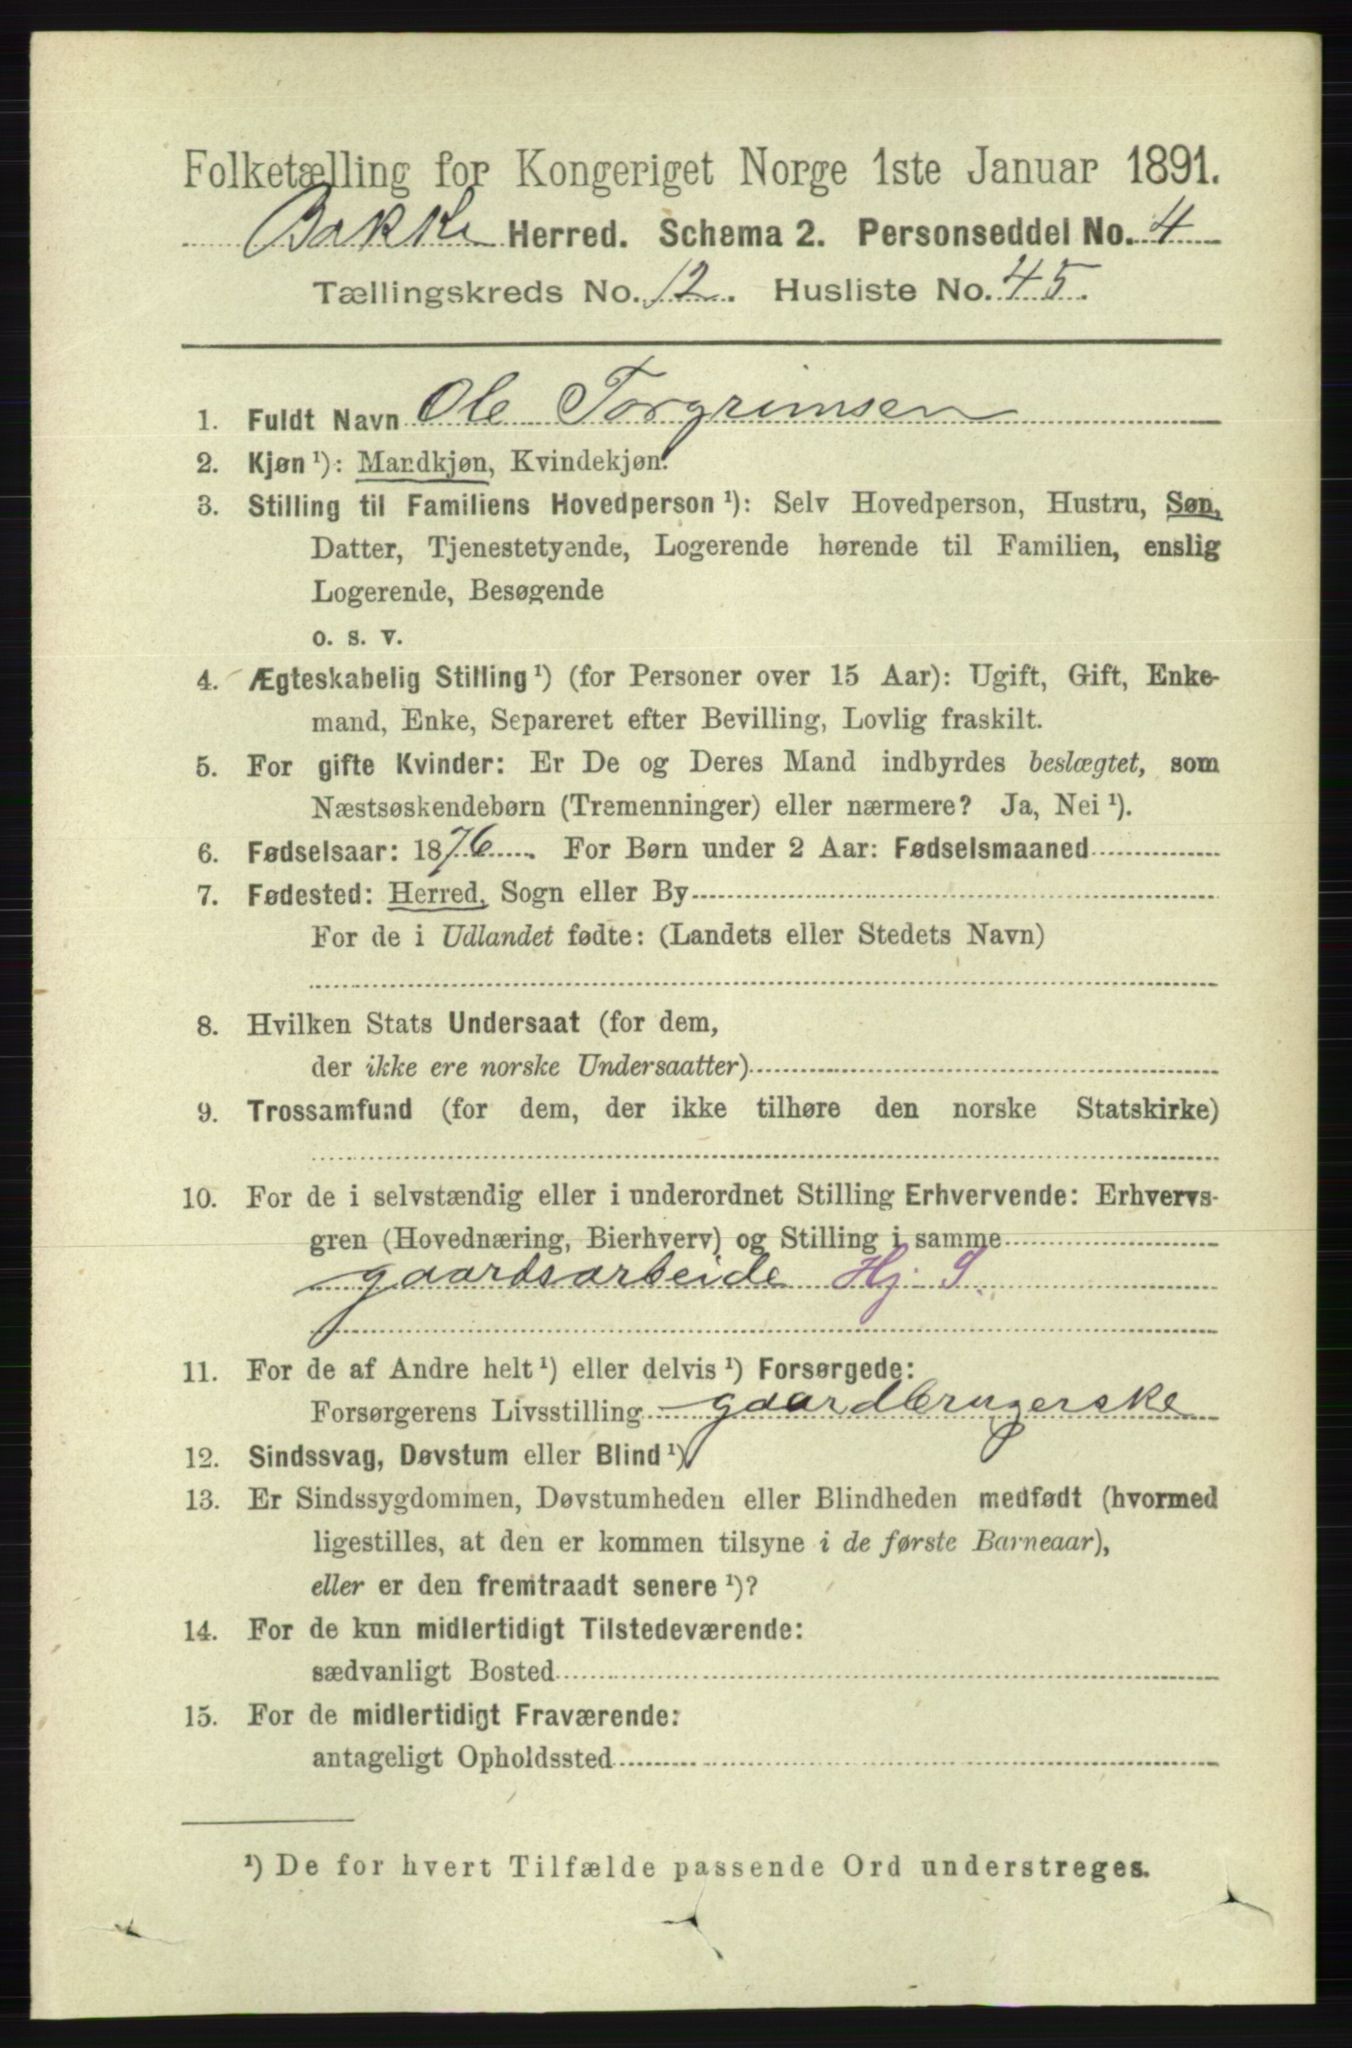 Folketælling for Kongeriget Norge 1ste Januar 1891.
Bakke Herred. Schema 2. Personseddel No. 4
Tællingskreds No. 12. Husliste No. 45.
1. Fuldt Navn Ole Torgrimsen
2. Kjøn ¹): Mandkjøn, Kvindekjøn.
3. Stilling til Familiens Hovedperson ¹): Selv Hovedperson, Hustru, Søn,
Datter, Tjenestetyende, Logerende hørende til Familien, enslig
Logerende, Besøgende
o. s. v.
4. Ægteskabelig Stilling ¹) (for Personer over 15 Aar): Ugift, Gift, Enke-
mand, Enke, Separeret efter Bevilling, Lovlig fraskilt.
5. For gifte Kvinder: Er De og Deres Mand indbyrdes beslægtet, som
Næstsøskendebørn (Tremenninger) eller nærmere? Ja, Nei ¹).
6. Fødselsaar: 1876. For Børn under 2 Aar: Fødselsmaaned
7. Fødested: Herred, Sogn eller By
For de i Udlandet fødte: (Landets eller Stedets Navn)
8. Hvilken Stats Undersaat (for dem,
der ikke ere norske Undersaatter)
9. Trossamfund (for dem, der ikke tilhøre den norske Statskirke)
10. For de i selvstændig eller i underordnet Stilling Erhvervende: Erhvervs-
gren (Hovednæring, Bierhverv) og Stilling i samme
gaardsarbeide Hj. S.
11. For de af Andre helt ¹) eller delvis ¹) Forsørgede:
Forsørgerens Livsstilling gaardbrugerske
12. Sindssvag, Døvstum eller Blind ¹)
13. Er Sindssygdommen, Døvstumheden eller Blindheden medfødt (hvormed
ligestilles, at den er kommen tilsyne i de første Barneaar),
eller er den fremtraadt senere ¹)?
14. For de kun midlertidigt Tilstedeværende:
sædvanligt Bosted
15. For de midlertidigt Fraværende:
antageligt Opholdssted
¹) De for hvert Tilfælde passende Ord understreges.